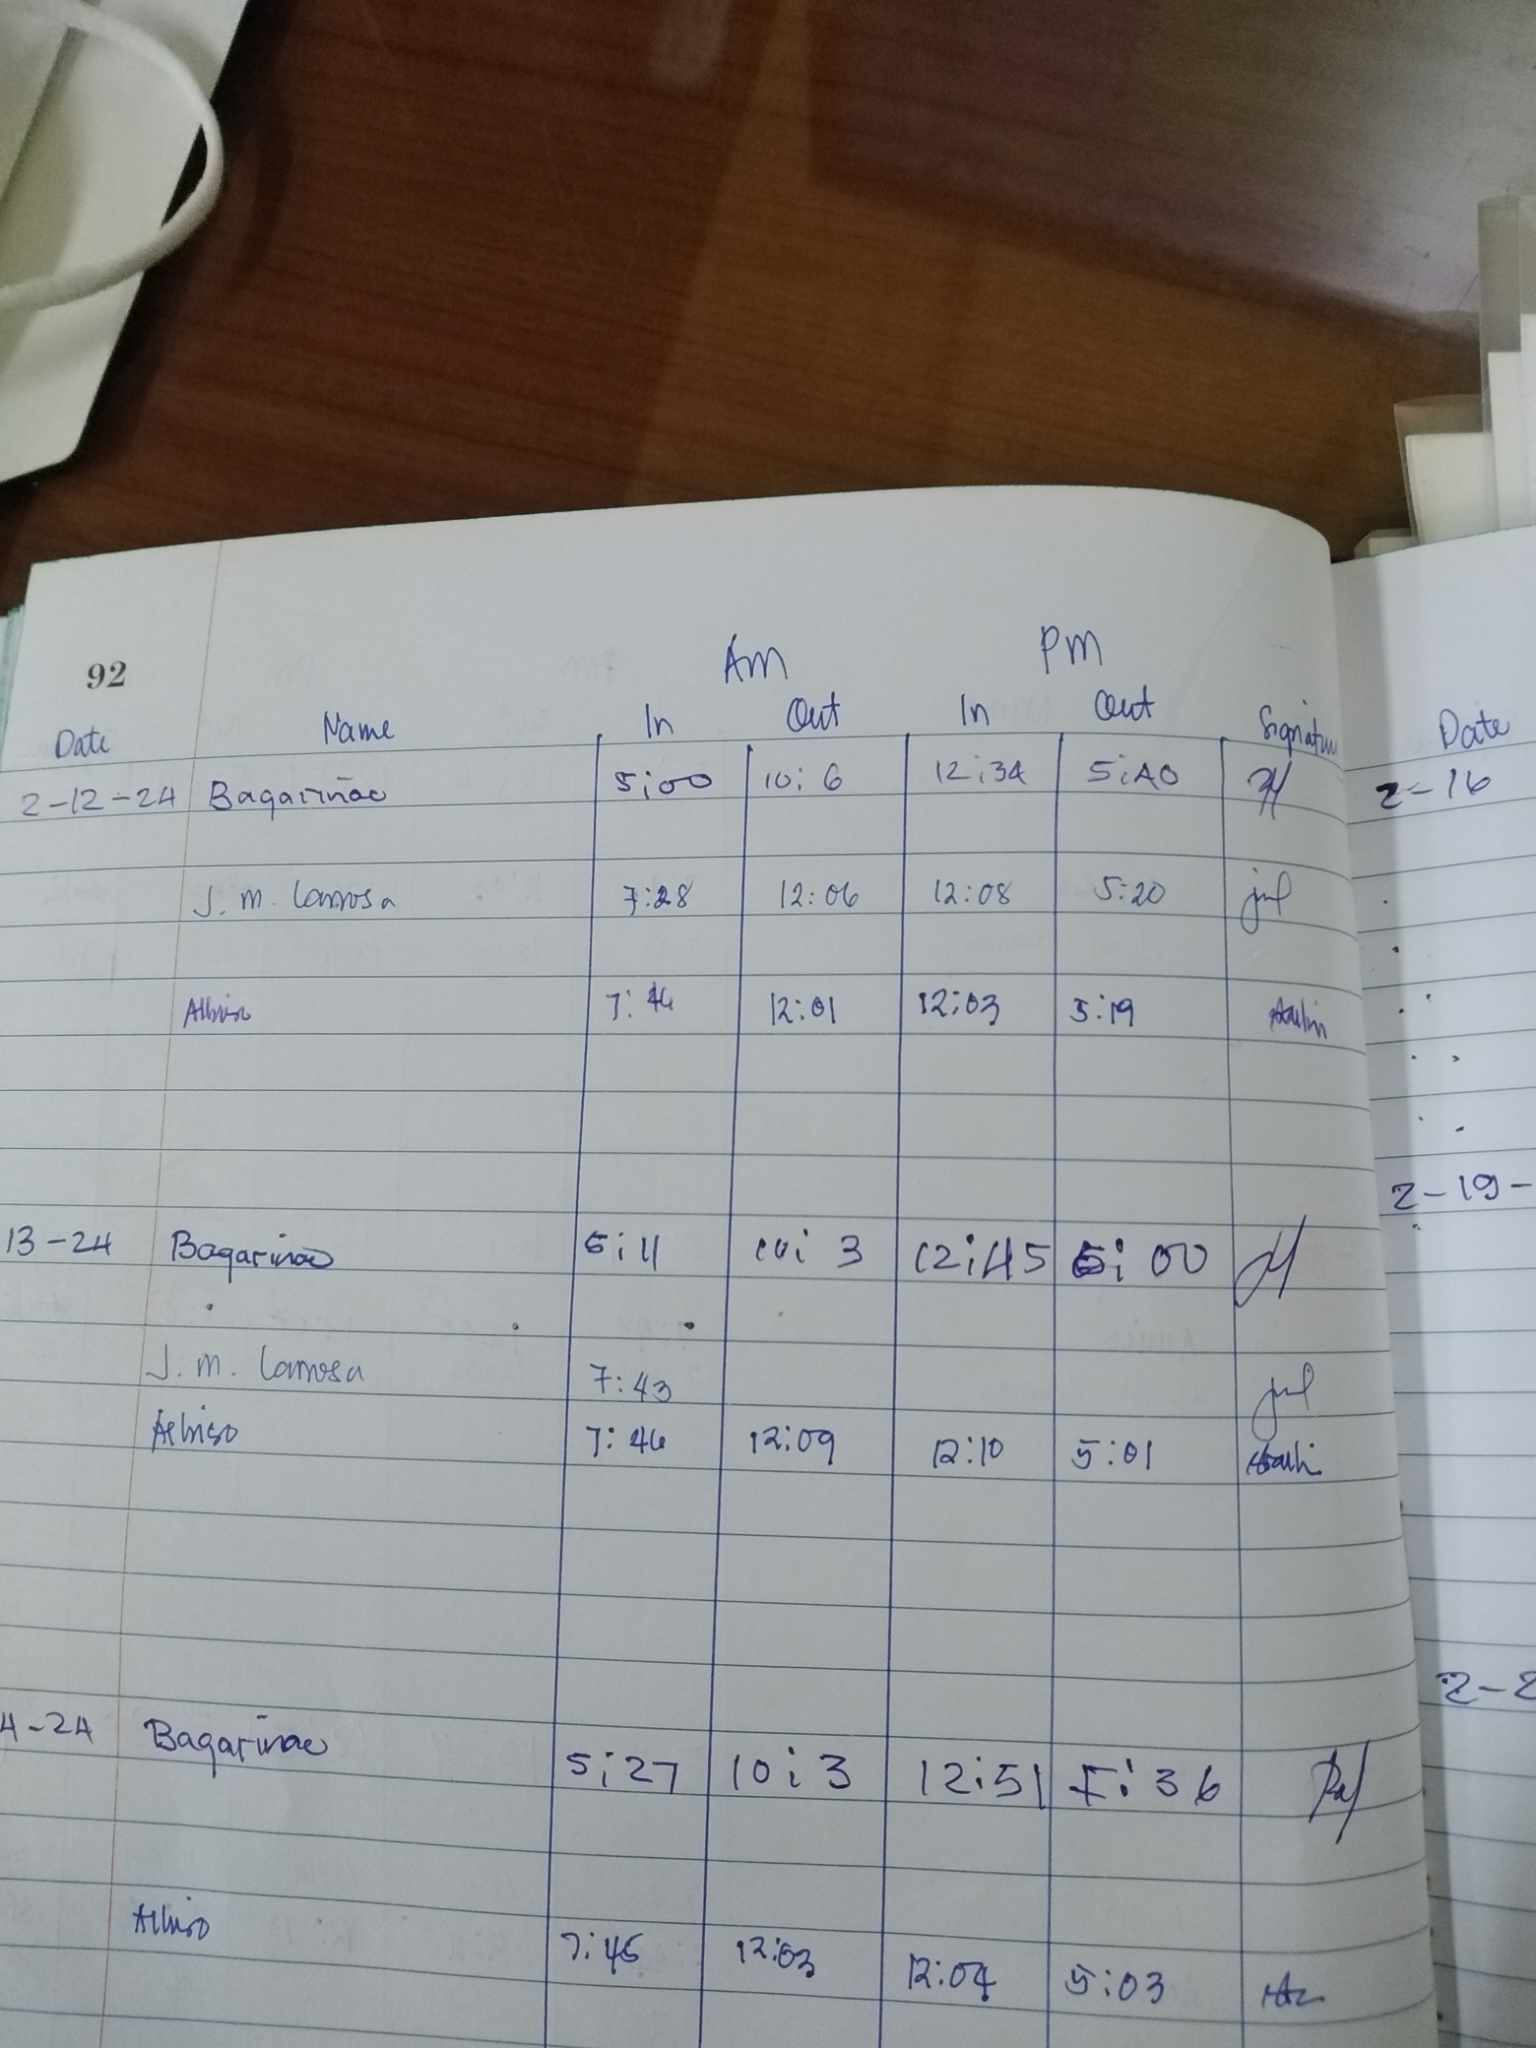 92
Am Pm
Date Name In Out In Out Signatur Date
2-12-24 Bagariñao 5:00 10:6 12:34 5:40 2-16
J. M. Lamosa 7:28 12:06 12:08 5:20
Albiso 7:46 12:01 12:03 5:19
2-19-
13-24 Bagarinao 5:11 10:3 12:45 5:00
J. M. Lamosa 7:43
Albiso 7:46 12:09 12:10 5:01
2-2
4-24 Bagarinao 5:27 10:3 12:51 5:36
Albiso 7:45 12:03 12:04 5:03